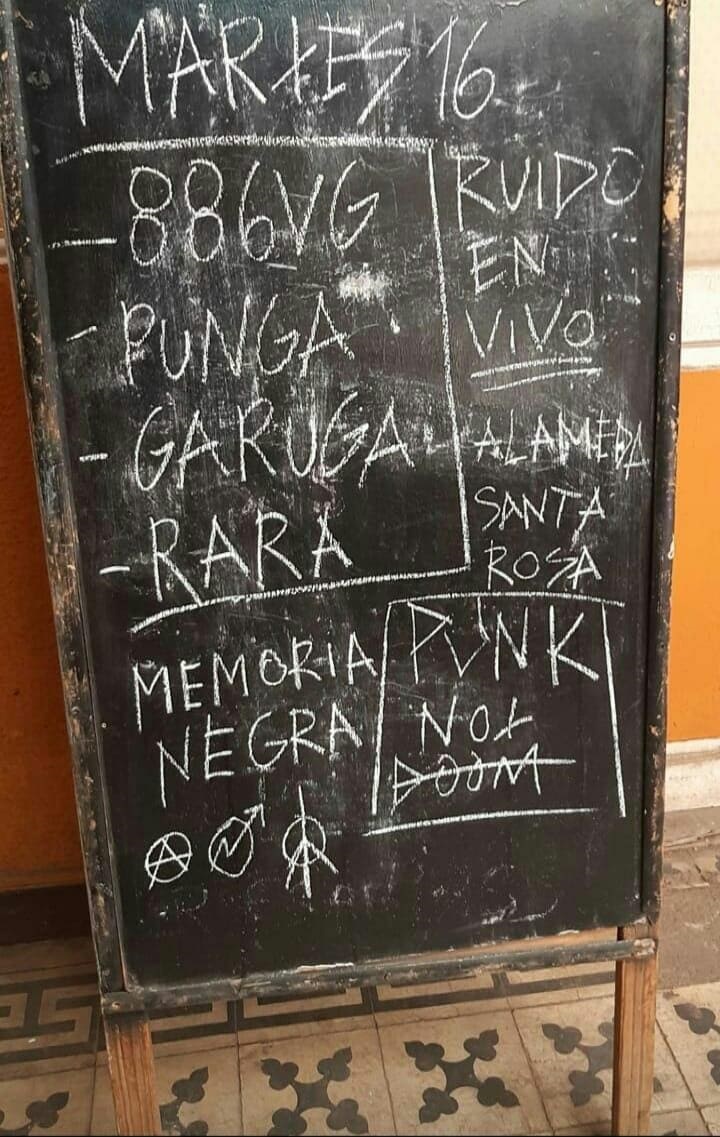 MARTES 16
- 886VG
- PUNGA
- GARUGA
- RARA
RUIDO
EN
VIVO
ALAMEDA
SANTA
ROSA
MEMORIA
NEGRA
PUNK
NOT
DOOM